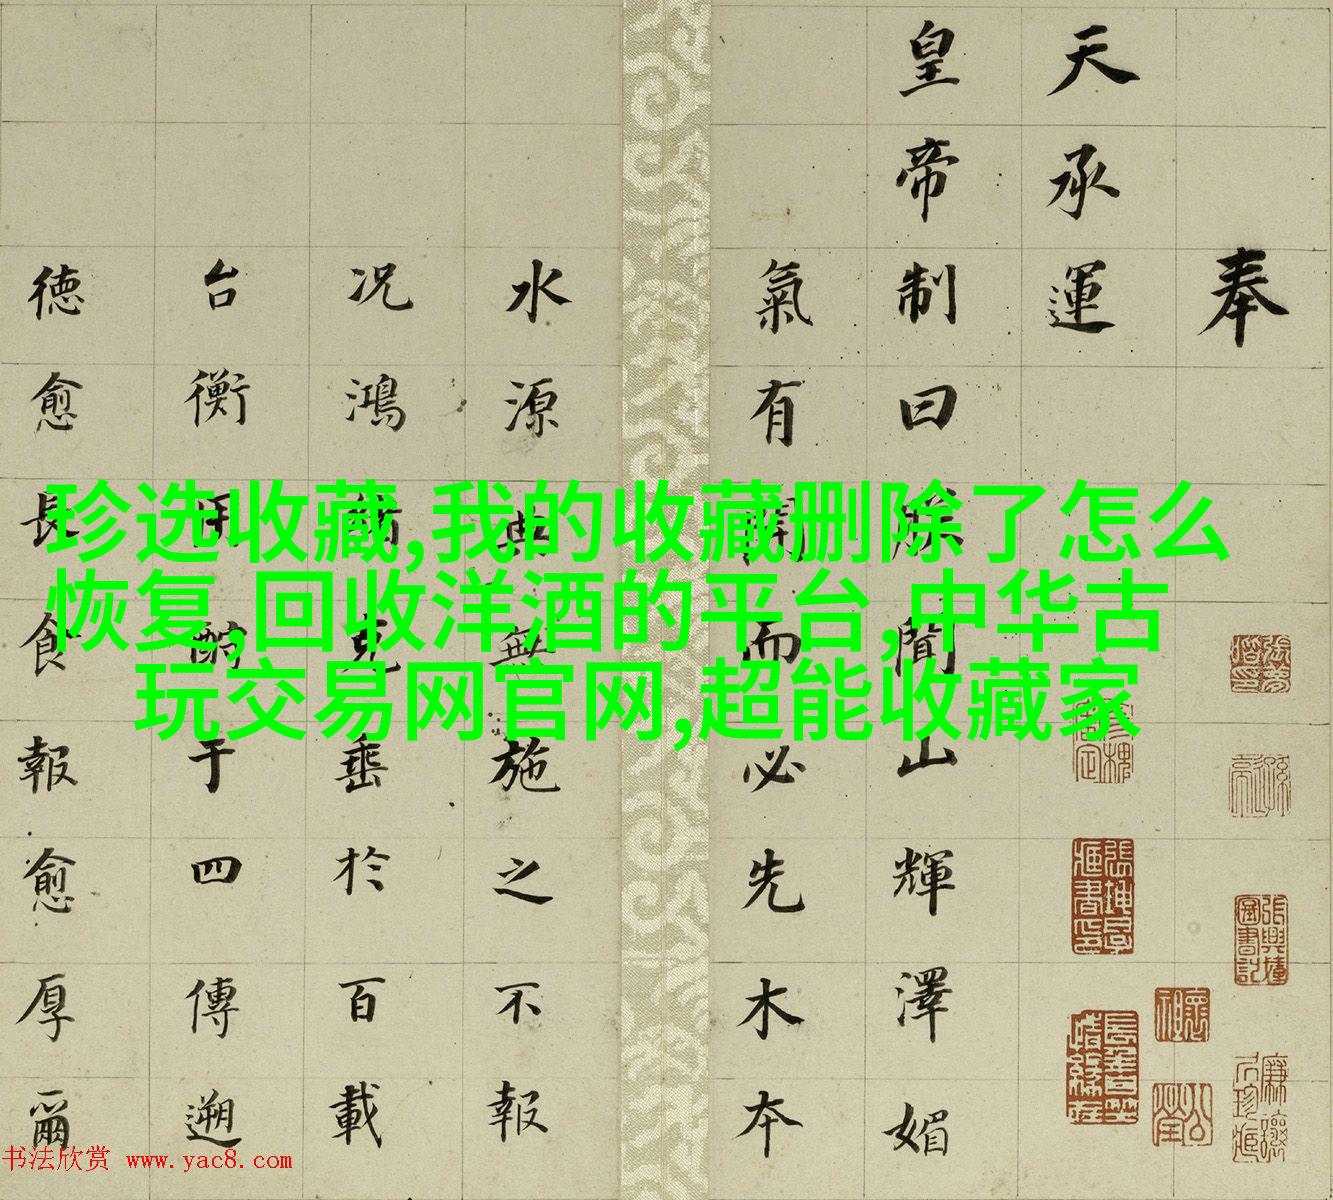 奉
天承運
皇帝制曰朕聞山輝澤媚
氣有開而必先木本
水源典無施之不報
况鴻緒克垂於百載
台衡用酬于四傳遡
德愈長食報愈厚爾
珍选收藏,我的收藏删除了怎么
恢复,回收洋酒的平台,中华古
玩交易网官网,超能收藏家
书法欣赏 www.yac8.com